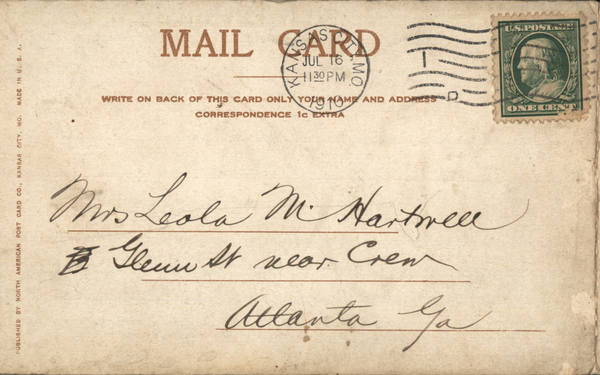 MAIL CARD
WRITE ON BACK OF THIS CARD ONLY YOUR NAME AND ADDRESS
CORRESPONDENCE 1c EXTRA
KANSAS CITY, MO.
JUL 16
11 30 PM
1910
U.S. POSTAGE
ONE CENT
Mrs Leola M. Hartwell
Glenn St near Crew
Atlanta Ga
PUBLISHED BY NORTH AMERICAN POST CARD CO., KANSAS CITY, MO. MADE IN U. S. A.